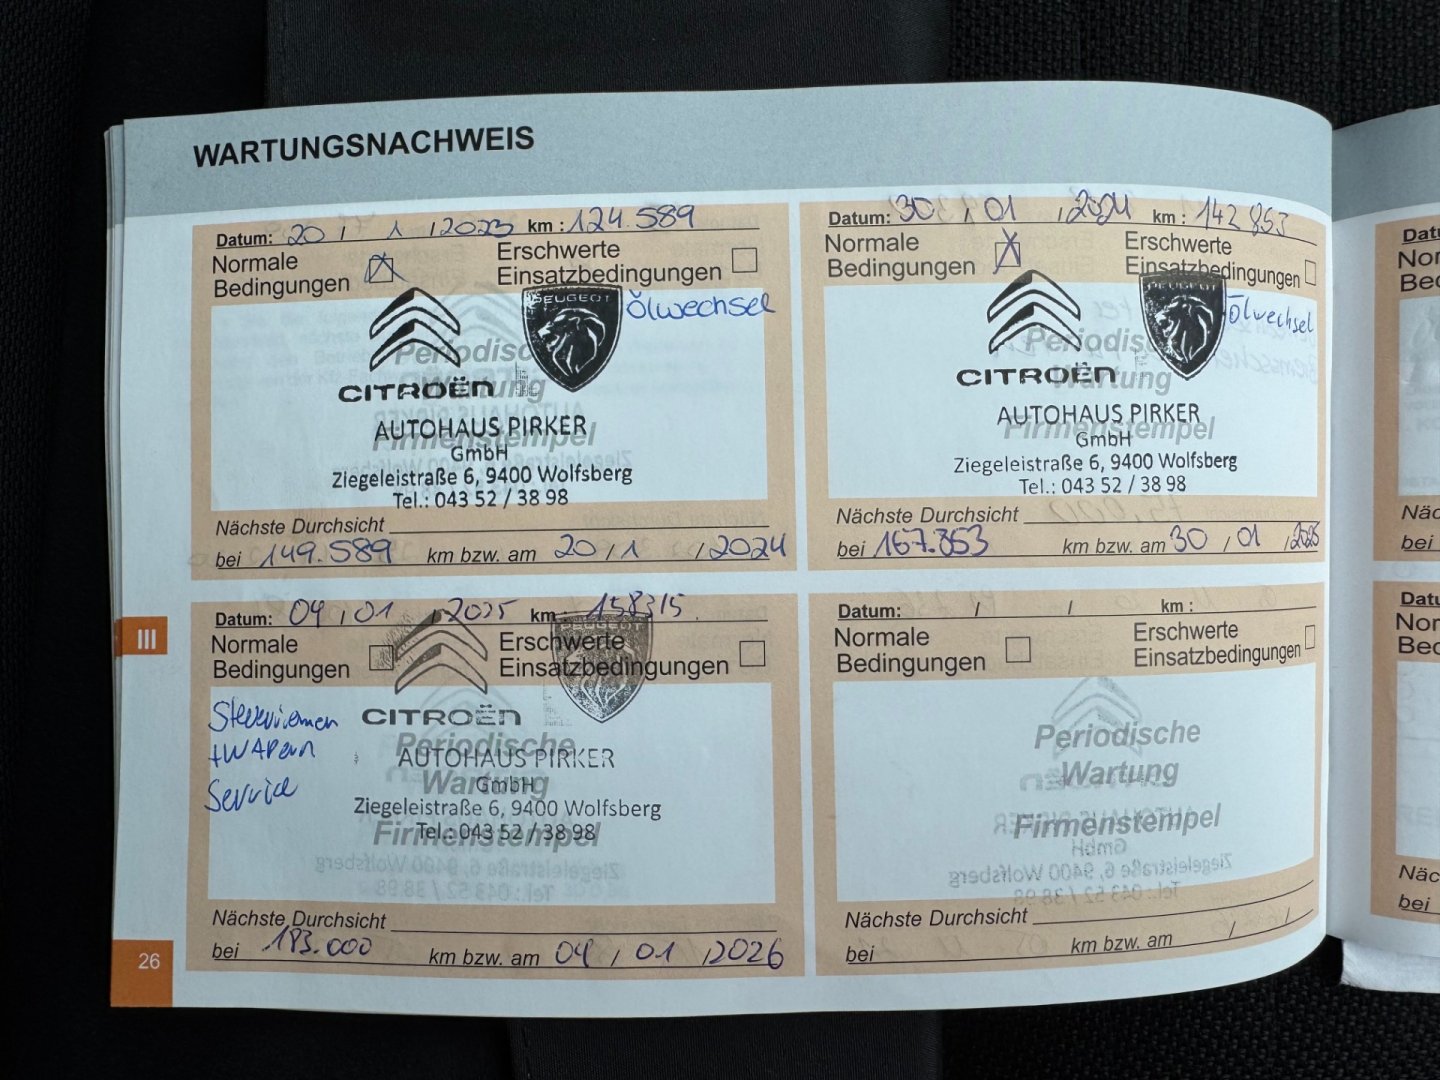 WARTUNGSNACHWEIS
Datum: 20 / 1 / 2023 km : 124.589
Normale Bedingungen
Erschwerte Einsatzbedingungen
PEUGEOT
Ölwechsel
CITROËN
Periodische
Wartung
Firmenstempel
AUTOHAUS PIRKER
GmbH
Ziegeleistraße 6, 9400 Wolfsberg
Tel.: 043 52 / 38 98
Nächste Durchsicht
bei 149.589 km bzw. am 20 / 1 / 2024
Datum: 30 / 01 / 2024 km : 142 853
Normale Bedingungen
Erschwerte Einsatzbedingungen
PEUGEOT
Ölwechsel
CITROËN
Periodische
Wartung
Firmenstempel
AUTOHAUS PIRKER
GmbH
Ziegeleistraße 6, 9400 Wolfsberg
Tel.: 043 52 / 38 98
Nächste Durchsicht
bei 167.853 km bzw. am 30 / 01 / 2025
III
Datum: 04 / 01 / 2025 km : 158315
Normale Bedingungen
Erschwerte Einsatzbedingungen
PEUGEOT
Service
CITROËN
Periodische
Wartung
Firmenstempel
AUTOHAUS PIRKER
GmbH
Ziegeleistraße 6, 9400 Wolfsberg
Tel.: 043 52 / 38 98
Nächste Durchsicht
bei 183.000 km bzw. am 04 / 01 / 2026
Datum: / / km :
Normale Bedingungen
Erschwerte Einsatzbedingungen
Periodische
Wartung
Firmenstempel
Nächste Durchsicht
bei km bzw. am / /
26